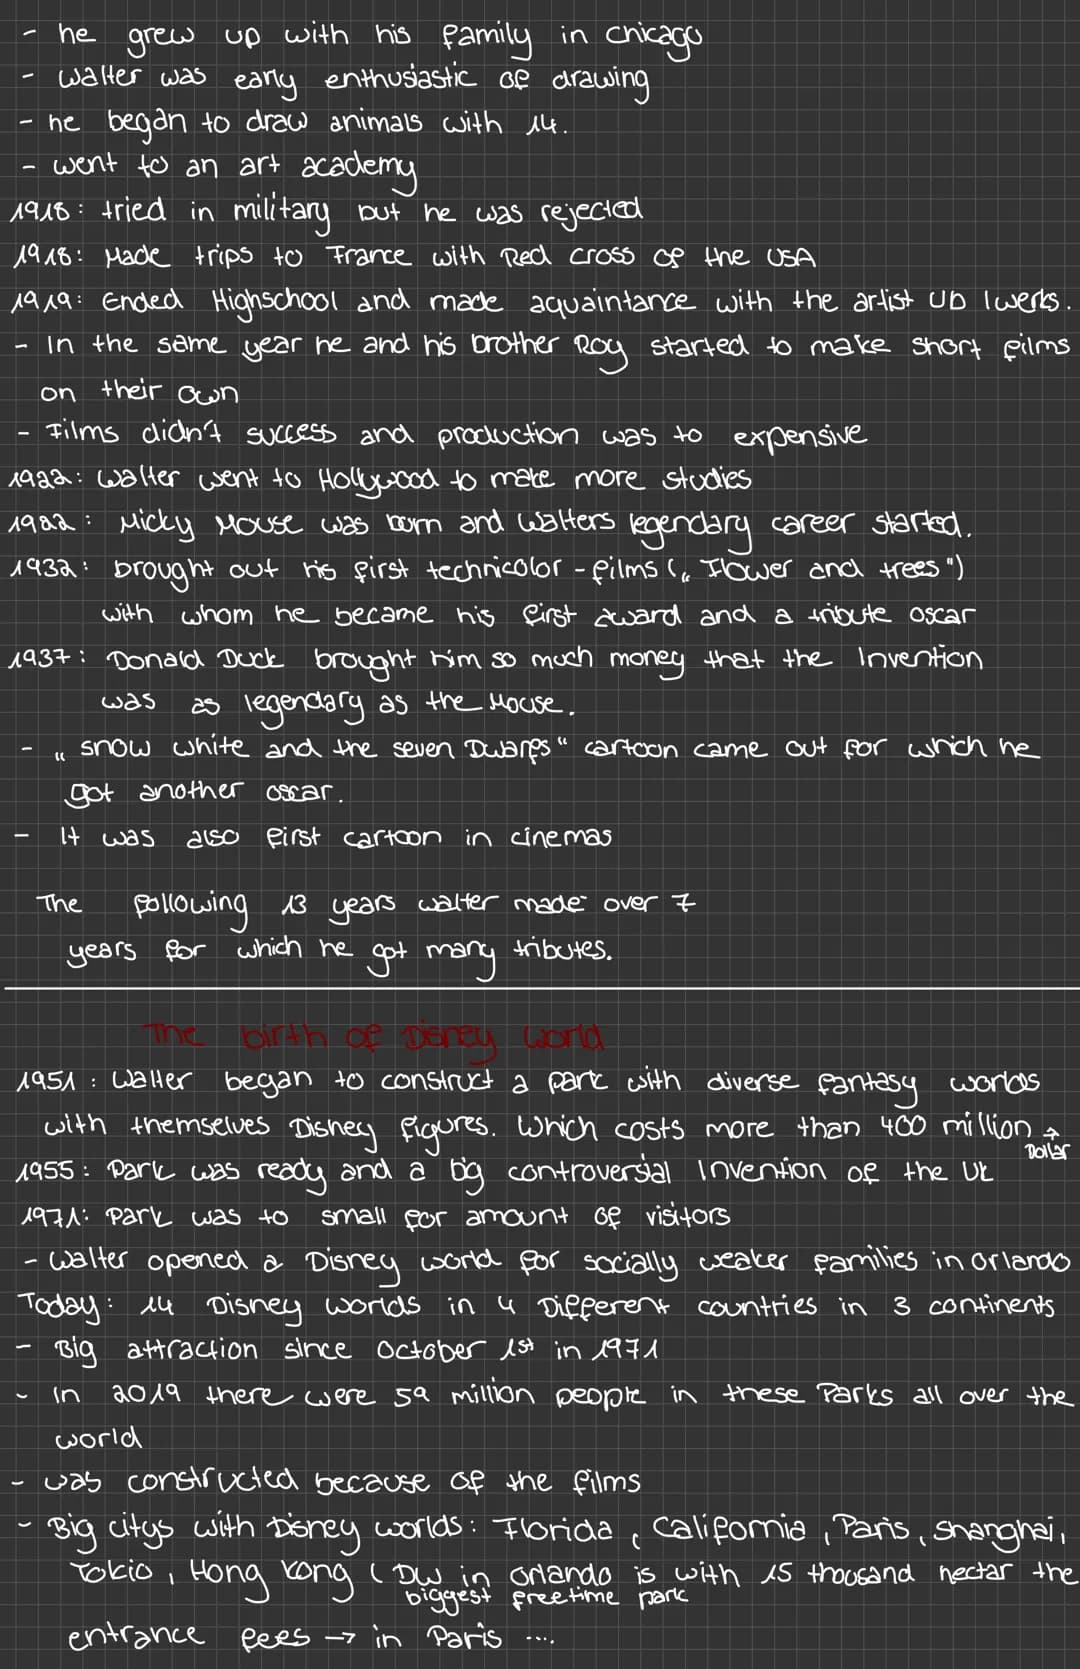 - he grew up with his family in chicago
- Walter was early enthusiastic of drawing
- he began to draw animals with 14.
- went to an art academy
1918: tried in military but he was rejected
1918: Made trips to France with Red cross of the USA
1919: Ended Highschool and made aquaintance with the artist UB Iwerks.
- In the same year he and his brother Roy started to make short films
on their own
- Films didn't success and production was to expensive
1922: Walter went to Hollywood to make more studies
1922: Micky Mouse was born and Walters legendary career started.
1932: brought out his first technicolor - films („Flower and trees")
with whom he became his first award and a tribute oscar
1937: Donald Duck brought him so much money that the Invention
was as legendary as the Mouse.
- „snow white and the seven Dwarfs“ cartoon came out for which he
got another oscar.
- It was also first cartoon in cinemas
The following 13 years walter made over 7
years for which he got many tributes.
The birth of Disney World
1951: Walter began to construct a park with diverse fantasy worlds
with themselves Disney figures. Which costs more than 400 million →
Dollar
1955: Park was ready and a big controversial Invention of the UK
1971: Park was to small for amount of visitors
- Walter opened a Disney world for socially weaker families in Orlando
Today: 14 Disney worlds in 4 Different countries in 3 continents
- Big attraction since October 1st in 1971
- In 2019 there were 59 million people in these Parks all over the
world
- was constructed because of the films
- Big citys with Disney worlds: Florida, California, Paris, Shanghai,
Tokio, Hong Kong (DW in Orlando is with 15 thousand hectar the
biggest freetime park
entrance fees → in Paris ....